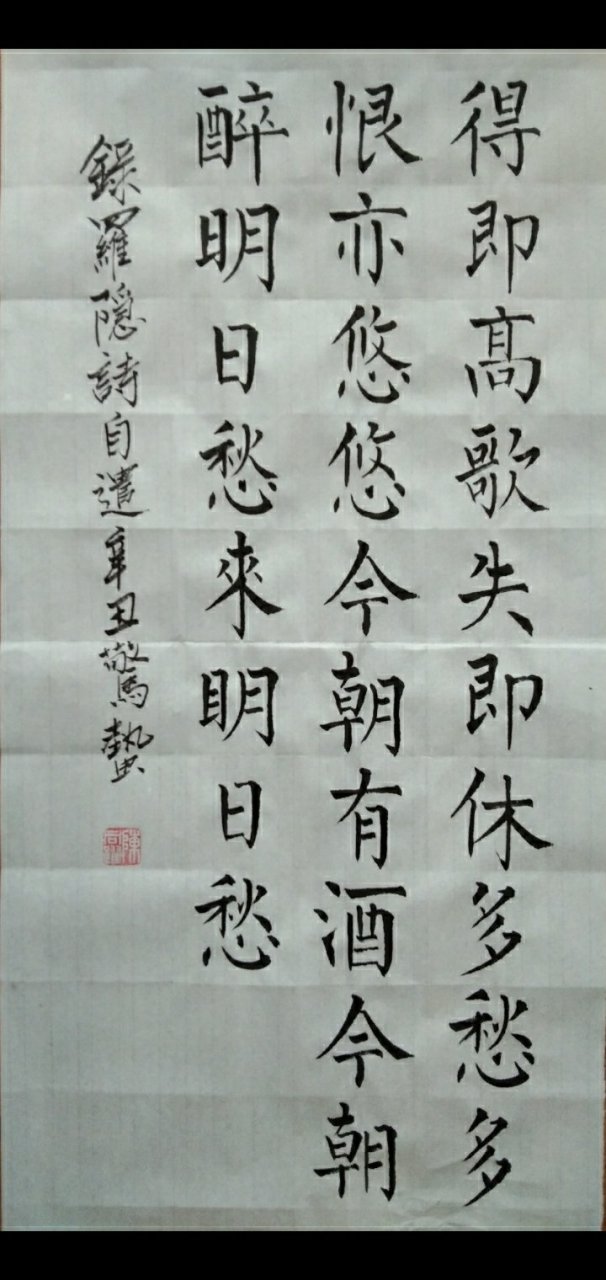 得即高歌失即休多愁多
恨亦悠悠今朝有酒今朝
醉明日愁來明日愁
錄羅隱詩自遣辛丑驚蟄